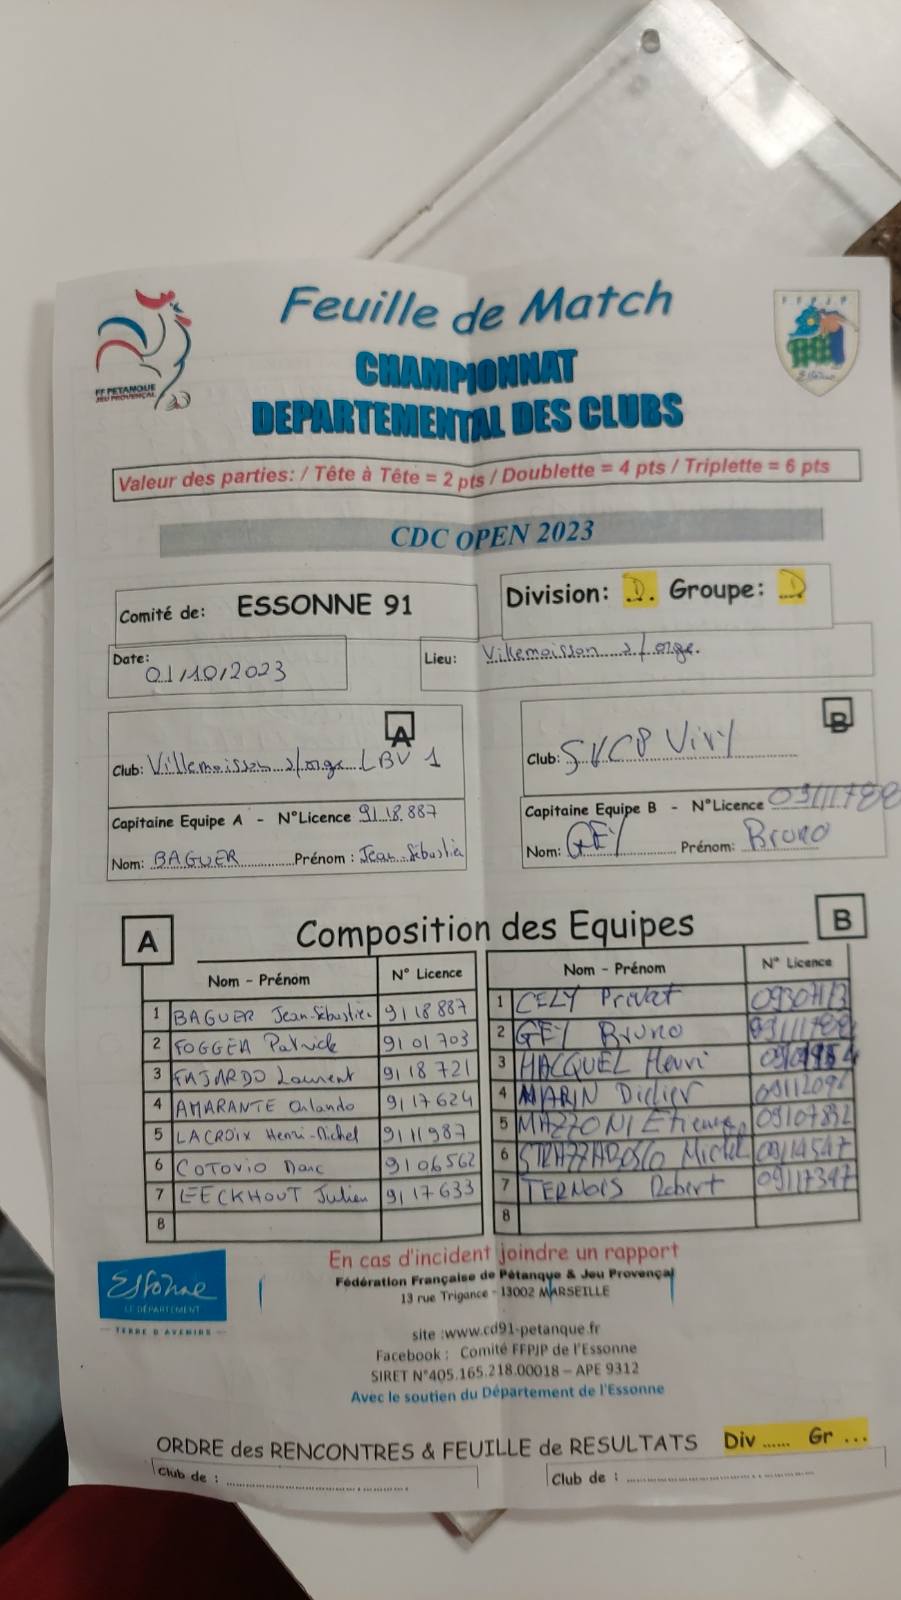 Feuille de Match
FF PETANQUE
JEU PROVENÇAL
FFPJP
Essonne
CHAMPIONNAT
DEPARTEMENTAL DES CLUBS
Valeur des parties: / Tête à Tête = 2 pts / Doublette = 4 pts / Triplette = 6 pts
CDC OPEN 2023
Comité de: ESSONNE 91
Division: D. Groupe: D
Date: 01/10/2023
Lieu: Villemoisson s/orge.
A
Club: Villemoisson s/orge LBV 1
Capitaine Equipe A - N°Licence 91 18 887
Nom: BAGUER Prénom : Jean-Sébastie
B
Club: SVCP Viry
Capitaine Equipe B - N°Licence 09111788
Nom: GEY Prénom: Bruno
A Composition des Equipes B
Nom - Prénom N° Licence Nom - Prénom N° Licence
1 BAGUER Jean-Sébastien 9118887 1 CELY Privat
2 Patrick 9101703 2 GEY Bruno 09111788
3 FAJARDO Laurent 9118721 3 HACQUEL Henri
4 AMARANTE Orlando 9117624 4 MARIN Didier
5 LACROIX Henri-Michel 9111987 5 MAZZONI Etienne 09107832
6 COTOVIO Marc 9106562 6 Michel 09114547
7 EECKHOUT Julien 9117633 7 TERNOIS Robert 09117347
8 8
Essonne
LE DÉPARTEMENT
TERRE D'AVENIRS
En cas d'incident joindre un rapport
Fédération Française de Pétanque & Jeu Provençal
13 rue Trigance - 13002 MARSEILLE
site :www.cd91-petanque.fr
Facebook : Comité FFPJP de l'Essonne
SIRET N°405.165.218.00018 – APE 9312
Avec le soutien du Département de l'Essonne
ORDRE des RENCONTRES & FEUILLE de RESULTATS Div ...... Gr ...
Club de : .................................... Club de : ....................................